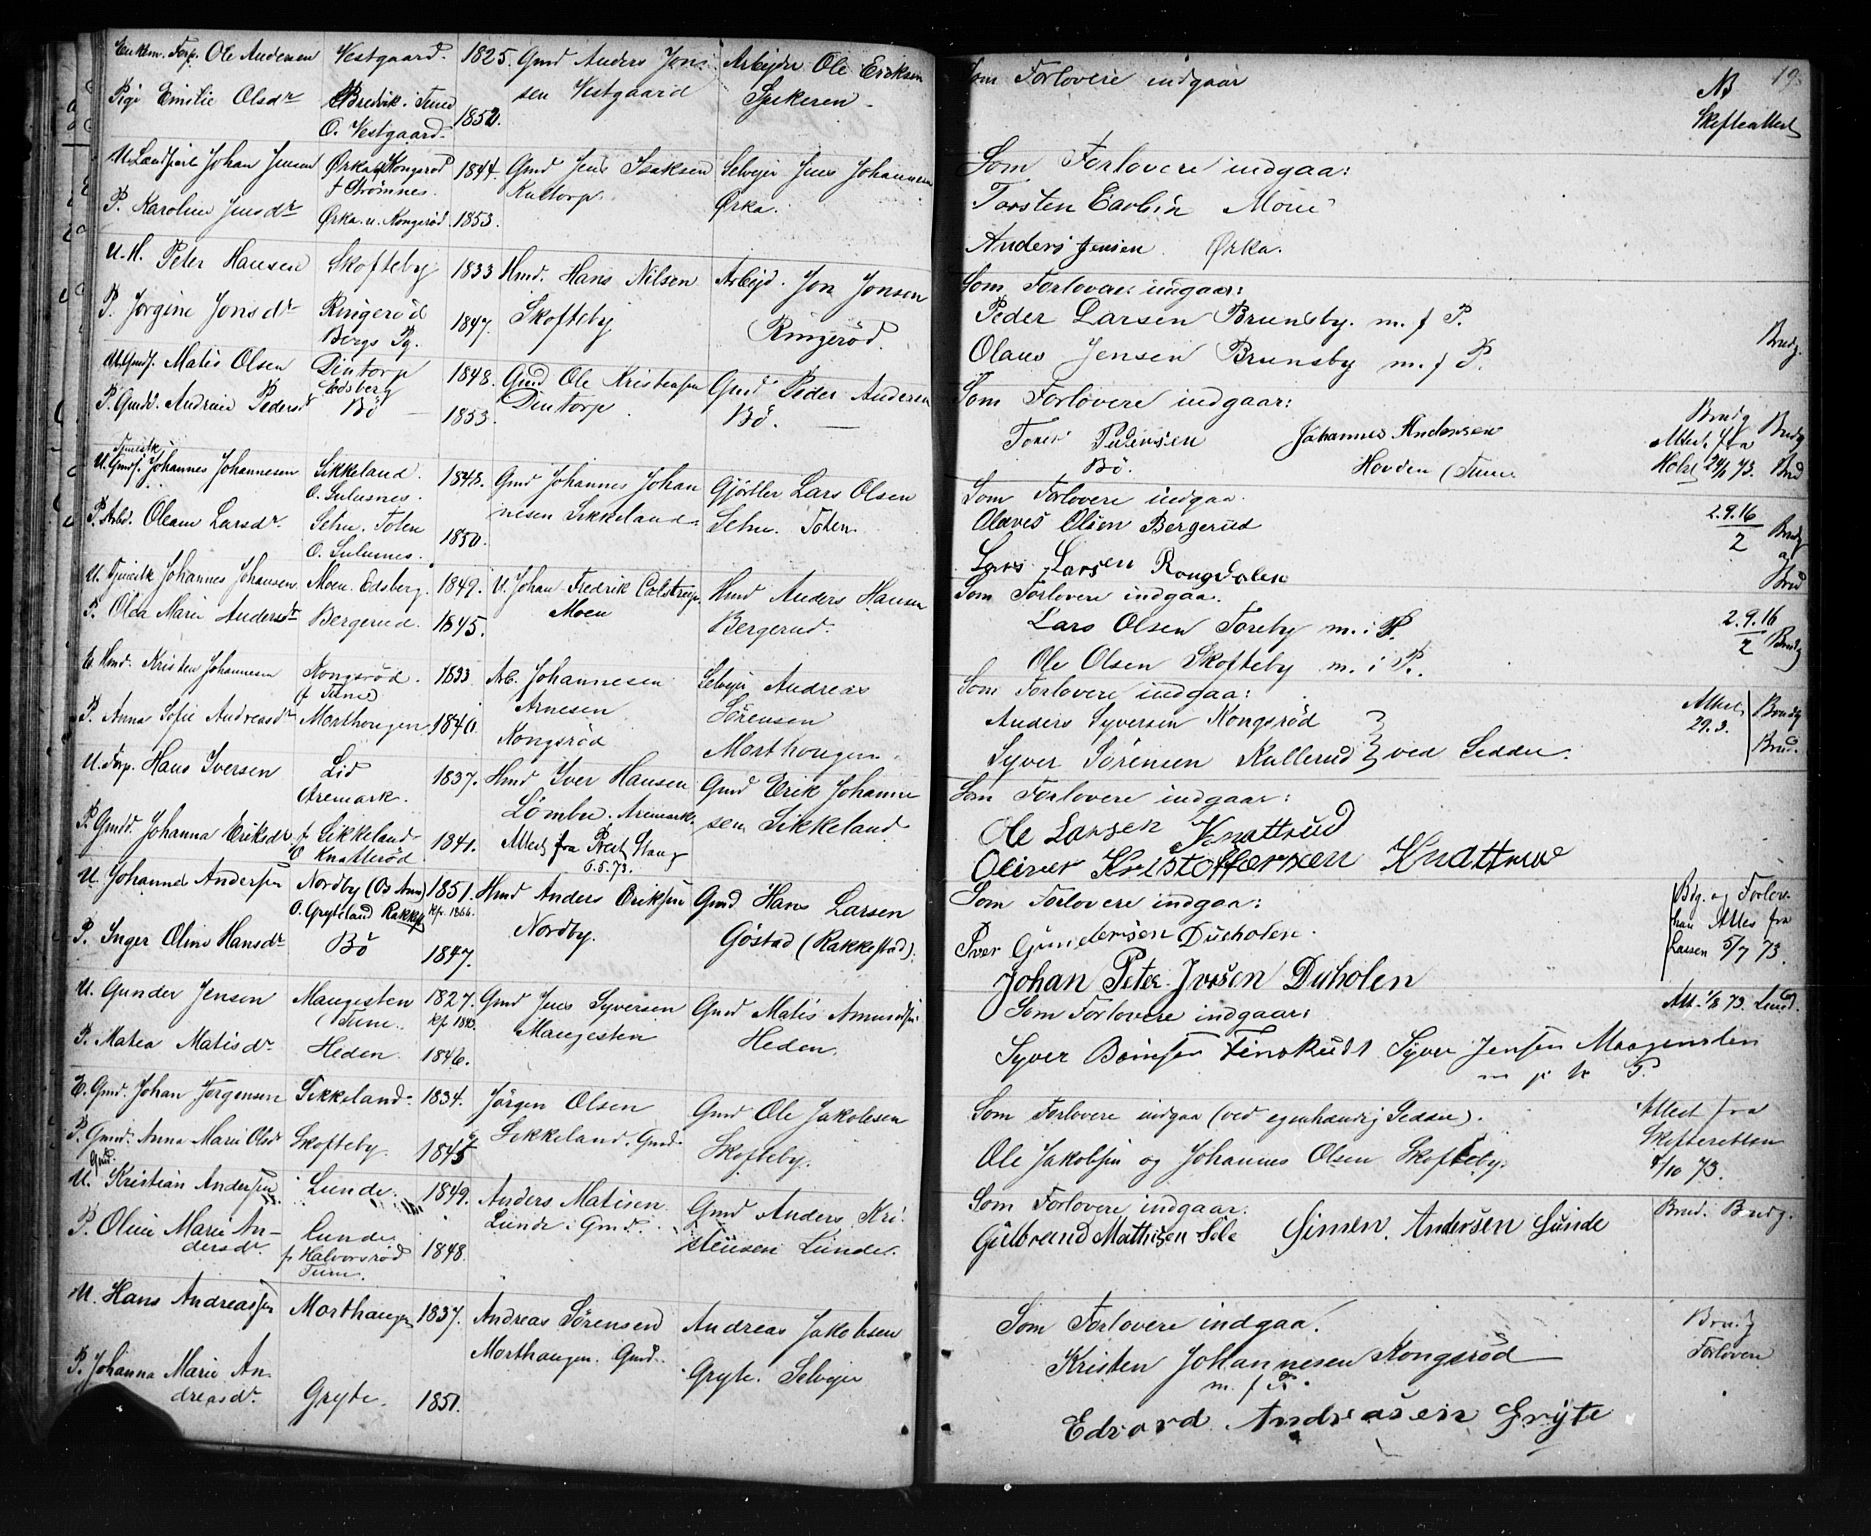 Enkem. Torp. Ole Andersen Vestgaard. 1825. Gmd Anders Jon- Arbeider Ole Eriksen
sen Vestgaard
Pige Emilie Olsdr Bredvik i Tune
O. Vestgaard. 1852.
U. Johan Jensen Ørka Kongsrød 1844. Gmd Jens Isaksen Selveier Jens Johannesen
f Strømnes. Ørka.
P. Karoline Jensdr Ørka. u. Kongsrød. 1853.
U. H. Peter Hansen Skofteby 1833 Hmd. Hans Nilsen Arbejd. Jon Jonsen
P. Jørgine Jonsdr Ringerød 1847. Skofteby Ringerød.
Bergs Pg.
U. Gmds. Matis Olsen Dintorp 1848. Gmd Ole Kristensen Gmd Peder Andersen
Edsberg Dintorp. Bø.
P. Gmdd. Andrine Pedersdr Bø 1853.
Tjenestk
U. Gmds. Johannes Johannesen Sikkeland. 1848. Gmd Johannes Johan Gjørtler Lars Olsen
O. Sulusnes. nesen Sikkeland. Toten.
P. Arbd. Oleane Larsdr. Toten 1850.
O. Sulusnes.
U. Tjenestk Johannes Johansen Moen. Edsberg. 1849. U. Johan Fredrik Hmd Anders Hansen
Moen Bergerud.
P. Olea Marie Andersdr Bergerud. 1845.
E. Hmd. Kristen Johannesen Kongsrød. 1833. Arb. Johannesen Selveier Andreas
(f Tune) Arnesen Sørensen
P. Anna Sofie Andreasdr Morthougen 1840. Kongsrød Morthougen.
U. Torp. Hans Iversen Lid 1837. Hmd Iver Hansen Gmd Erik Johanne
Aremark. Lømbu. Aremark. sen Sikkeland
P. Gmdd. Johanna Eriksdr f Sikkeland 1841. Attest fra Prest Stang
O Knatterød. 6.5.73.
U. Johannes Andersen Nordby (Os Ann) 1851. Hmd Anders Eriksen Gmd Hans Larsen
O. Gryteland Rakkes. Kf. 1866. Nordby. Gøstad (Rakkestad).
P. Inger Oline Hansdr Bø 1847.
U. Gunder Jensen Maugesten 1827. Gmd Jens Syversen Gmd Matis Amundsen
(Tune. Kf. 1843. Maugesten Heden.
P. Matea Matisdr Heden. 1846.
E. Gmd. Johan Jørgensen Sikkeland. 1834. Jørgen Olsen Gmd Ole Jakobsen
P. Gmd. Anna Marie Olsdr Skofteby. 1845 Sikkeland. Gmd. Skofteby.
Gmd.
U. Kristian Andersen Lunde. 1849. Anders Matisen Gmd Anders Kri
P. Oline Marie An- Lunde Lunde. Gmd. stensen Lunde.
dersdr. f Halvorsrød 1848.
Tune.
U. Hans Andreassen Morthaugen 1837. Andreas Sørensen Andreas Jakobsen
Morthaugen. Gmd. Gryte. Selveier
P. Johanna Marie An
dreasdr. Gryte. 1851.
Som Forlovere indgaar NB 19.
Skifteattest
Som Forlovere indgaa:
Torsten Moen
Anders Jensen Ørka.
Som Forlovere indgaar:
Peder Larsen Brunsby. m. f P. Brudg.
Olaus Jensen Brunsby m. f P.
Som Forlovere indgaar: Brudg Brudg
Pedersen Johannes Andersen Attest fra
Bø. Hovden (Tune Hols 24/6 73. Brud
Som Forlovere indgaa.
Olaves Olsen Bergerud 2.9.16
2 Brudg
Lars Larsen Rongdalen og Brud
Som Forlovere indgaa.
Lars Olsen Toreby m. i P. 2.9.16
2 Brudg
Ole Olsen Skofteby m. i P.
Som Forlovere indgaa: Attest, Brudg
Anders Syversen Kongsrød 29.3. Brud.
Syver Sørensen Kullerud } ved Seddel.
Som Forlovere indgaar:
Ole Larsen Knattrud
Oliver Kristoffersen Knattrud
Som Forlovere indgaa: Bdg. og Forlov.
Iver Gundersen Duholen. har Attes fra
Larsen 5/7 73.
Johan Peter Iversen Duholen
Som Forlovere indgaar: Att. 1/8 73. Lund.
Syver Finskudt Syver Jensen Maagensten
m p k P.
Som Forlovere indgaa (ved egenhændig Seddel). Attest fra
Skifteretten
Ole Jakobsen og Johannes Olsen Skofteby. 4/10 73.
Som Forlovere indgaar. Brud. Brudg.
Gulbrand Mathisen Sole Simen. Andersen Lunde
Som Forlovere indgaa. Brudg
Kristen Johannesen Kongsrød Forlovere
m. f P.
Edvard Andreasen Gryte